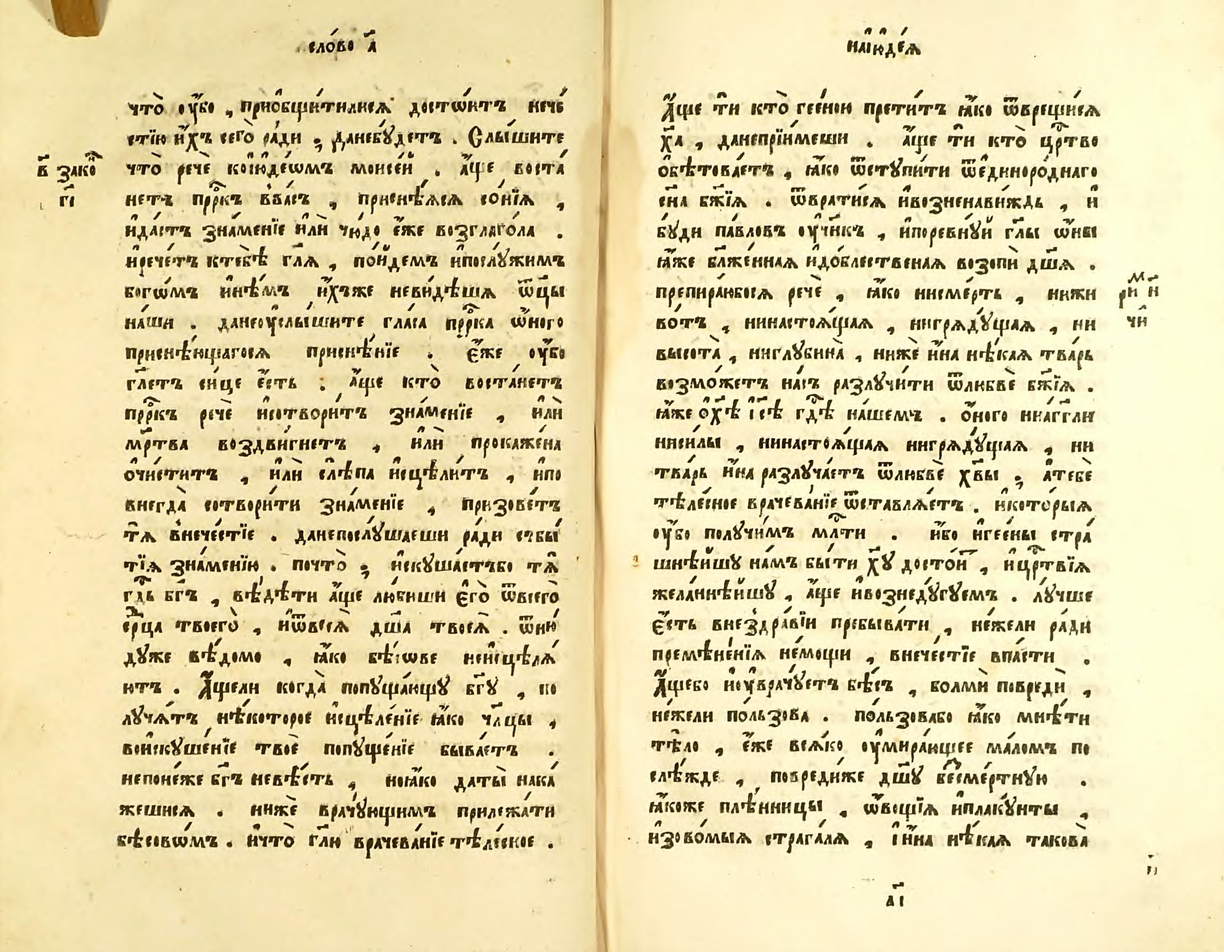 сло́во а҃
что̀ ᲂу҆́бо , приѻбщи́тилися достѡ́итъ нече́
стїю и҆́хъ сего̀ ра́ди ; данебꙋ́детъ . Слы́шите
в҃ зако
что̀ речѐ кою҆де́ѡмъ моисе́й . а҆́ще воста́
г҃і
нетъ прⷪ҇ркъ вва́съ , присне́ѧсѧ со́нїѧ ,
и҆да́стъ зна́менїе и҆лѝ чю́до е҆́же возглаго́ла .
и҆рече́тъ ктебѣ̀ гл҃ѧ , по́йдемъ и҆послꙋ́жимъ
богѡ́мъ и҆нѣ́мъ и҆́хъже неви́дѣша ѿц҃ы
на́ши . данеᲂуслы́шите гла́са прⷪ҇рка ѡ҆́ного
приснѣ́ющагосѧ присне́нїе . е҆́же ᲂу҆́бо
гл҃етъ си́це є҆́сть : а҆́ще кто̀ воста́нетъ
прⷪ҇ркъ речѐ и҆сотвори́тъ зна́менїе , и҆лѝ
мр҃тва воздви́гнетъ , и҆лѝ прокаже́на
ѻ҆чи́ститъ , и҆лѝ слѣ́па и҆сцѣли́тъ , и҆по
внегда̀ сотвори́ти зна́менїе , призове́тъ
тѧ̀ внече́стїе . данепослꙋ́шаеши ра́ди сбы́
тїѧ зна́менїю . почто̀ ; и҆скꙋша́етъбо тѧ̀
гд҃ь бг҃ъ , вѣ́дѣти а҆́ще лю́биши є҆го̀ ѿвсего̀
срⷣца твоего̀ , и҆ѿвсеѧ̀ дш҃а̀ твоеѧ̀ . ѿню
дꙋ́же вѣ́домо , ꙗ҆́ко бѣ́сѡве неи҆сцѣлѧ́
ютъ . А҆́щели когда̀ попꙋща́ющꙋ бг҃ꙋ , по
лꙋча́тъ нѣ́которое и҆сцѣле́нїе ꙗ҆́ко чл҃цы ,
вои҆скꙋше́нїе твоѐ попꙋще́нїе быва́етъ .
непоне́же бг҃ъ невѣ́сть , ноꙗ҆́ко даты̀ нака́
жешисѧ . нижѐ врачꙋ́ющимъ прилежа́ти
бѣсовѡ́мъ . и҆что̀ гл҃ю врачева́нїе тѣле́сное .
наі҆ꙋде́ѧ
А҆́ще тѝ кто̀ гее́ною прети́тъ ꙗ҆́ко ѿврещи́сѧ
хр҃а̀ , данепрїи́меши . а҆́ще тѝ кто̀ црⷭ҇тво
ѻ҆бѣтова́етъ , ꙗ҆́ко ѿстꙋпи́ти ѿединоро́днаго
сн҃а бж҃їѧ . ѿврати́сѧ и҆возненави́ждь , и҆
бꙋ́ди па́вловъ ᲂу҆чн҃къ , и҆поревнꙋ́й гл҃ы ѡ҆́ны
ꙗ҆́же бл҃же́ннаѧ и҆до́блественаѧ возопѝ дш҃ѧ̀ .
препира́юбосѧ речѐ , ꙗ҆́ко нисме́рть , нижи
во́тъ , нинастоѧ́щаѧ , нигрѧдꙋ́щаѧ , ни
высота̀ , ниглꙋбина̀ , нижѐ и҆́на нѣ́каѧ тва́рь
возмо́жетъ на́съ разлꙋчи́ти ѿлюбвѐ бж҃їѧ .
ꙗ҆́же ѻ҆хр҃ѣ̀ і҆с҃ѣ гд҃ѣ на́шемъ . ѻ҆́ного ниа҆гг҃ли
ниси́лы , нинастоѧ́щаѧ нигрѧдꙋ́щаѧ , ни
тва́рь и҆́на разлꙋча́етъ ѿлюбвѐ хр҃вы ; а҆тебѐ
тѣле́сное врачева́нїе ѿставлѧ́етъ . и҆которы́ѧ
ᲂу҆́бо полꙋ́чимъ млⷭ҇ти . и҆́бо и҆гее́ны стра
шнѣ́йшꙋ на́мъ бы́ти хр҃ꙋ досто́и , и҆црⷭ҇твїѧ
жела́ннѣйшꙋ , а҆́ще и҆вознедꙋ́гꙋемъ . лꙋ́чше
є҆́сть внездра́вїи пребыва́ти , не́жели ра́ди
премѣне́нїѧ не́мощи , внече́стїе впа́сти .
А҆́щебо и҆ᲂуврачꙋ́етъ бѣ́съ , бо́лми повредѝ ,
не́жели по́льзова . по́льзовабо ꙗ҆́ко мнѣ́ти
тѣ́ло , є҆́же всѧ́ко ᲂу҆мира́ющее ма́ломъ по
слѣ́жде , повреди́же дш҃ꙋ безсме́ртнꙋю .
ꙗ҆́коже плѣ́нницы , ѡ҆во́щїѧ и҆плакꙋ́нты ,
и҆зово́мыѧ страга́лѧ , і҆́на нѣ́каѧ такова̀
а҃і